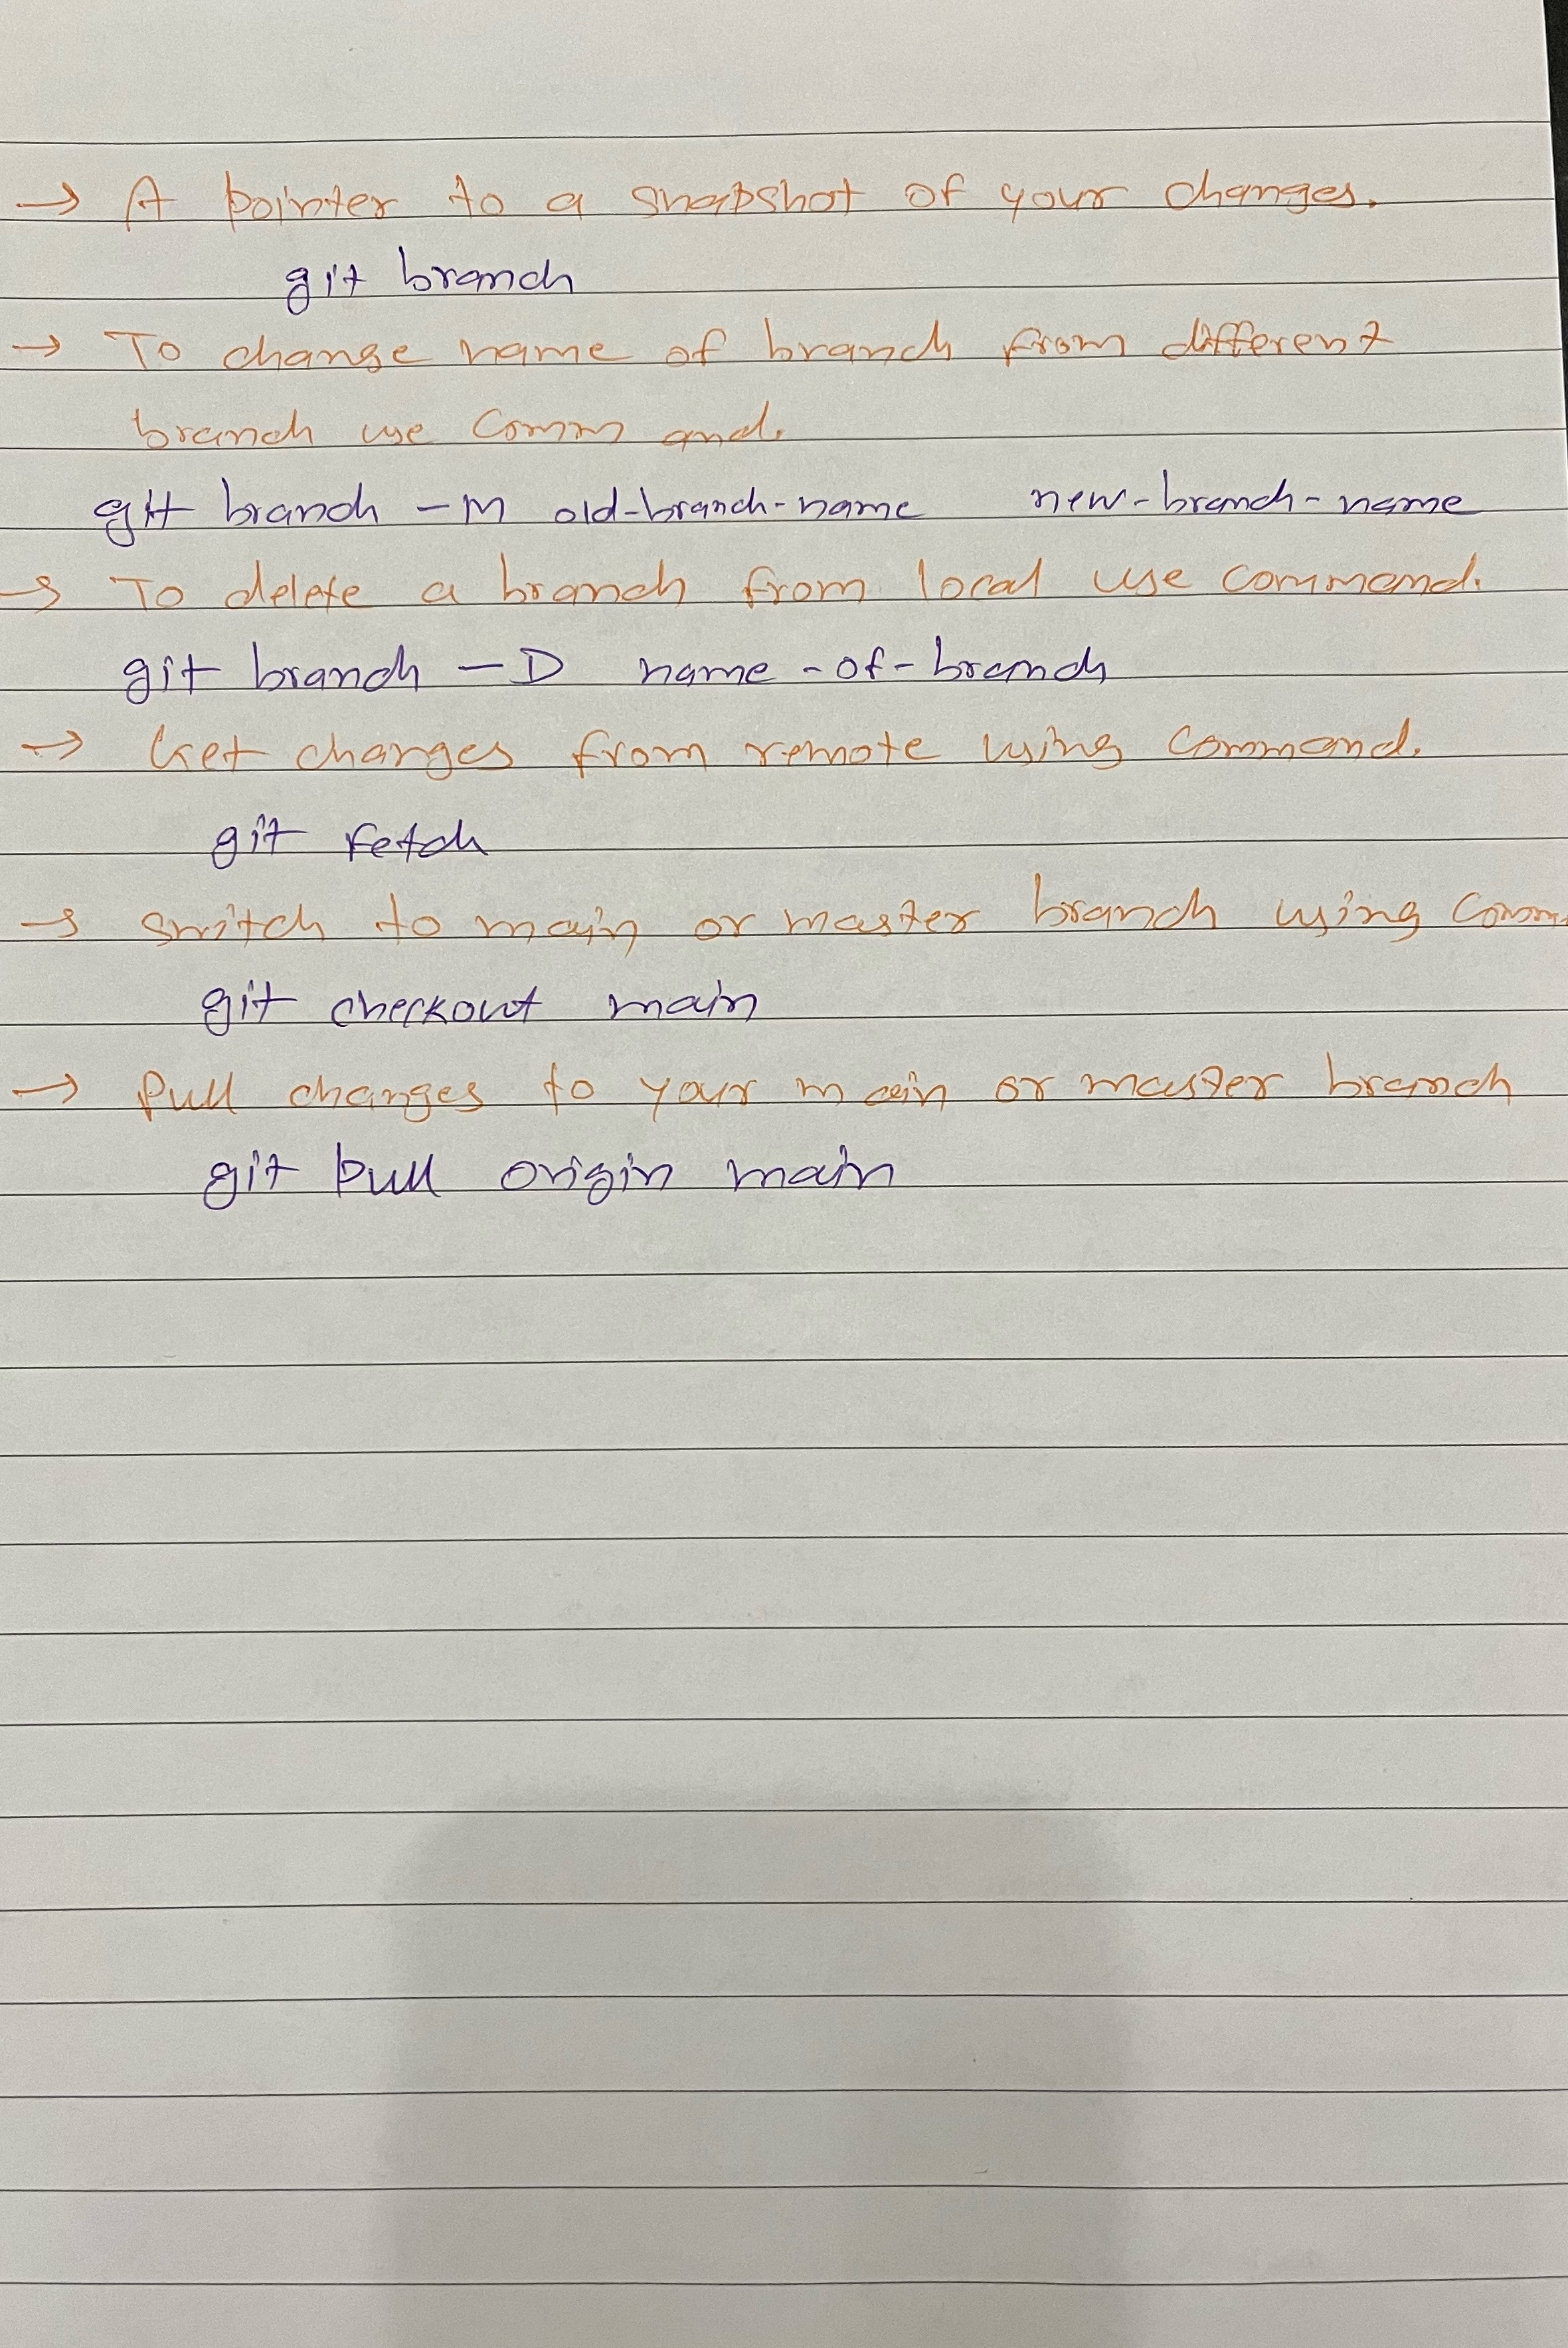 → A pointer to a snapshot of your changes.
git branch
→ To change name of branch from different
branch use command.
git branch -M old-branch-name new-branch-name
→ To delete a branch from local use command.
git branch -D name-of-branch
→ Get changes from remote using command.
git fetch
→ switch to main or master branch using comm
git checkout main
→ Pull changes to your main or master branch
git pull origin main